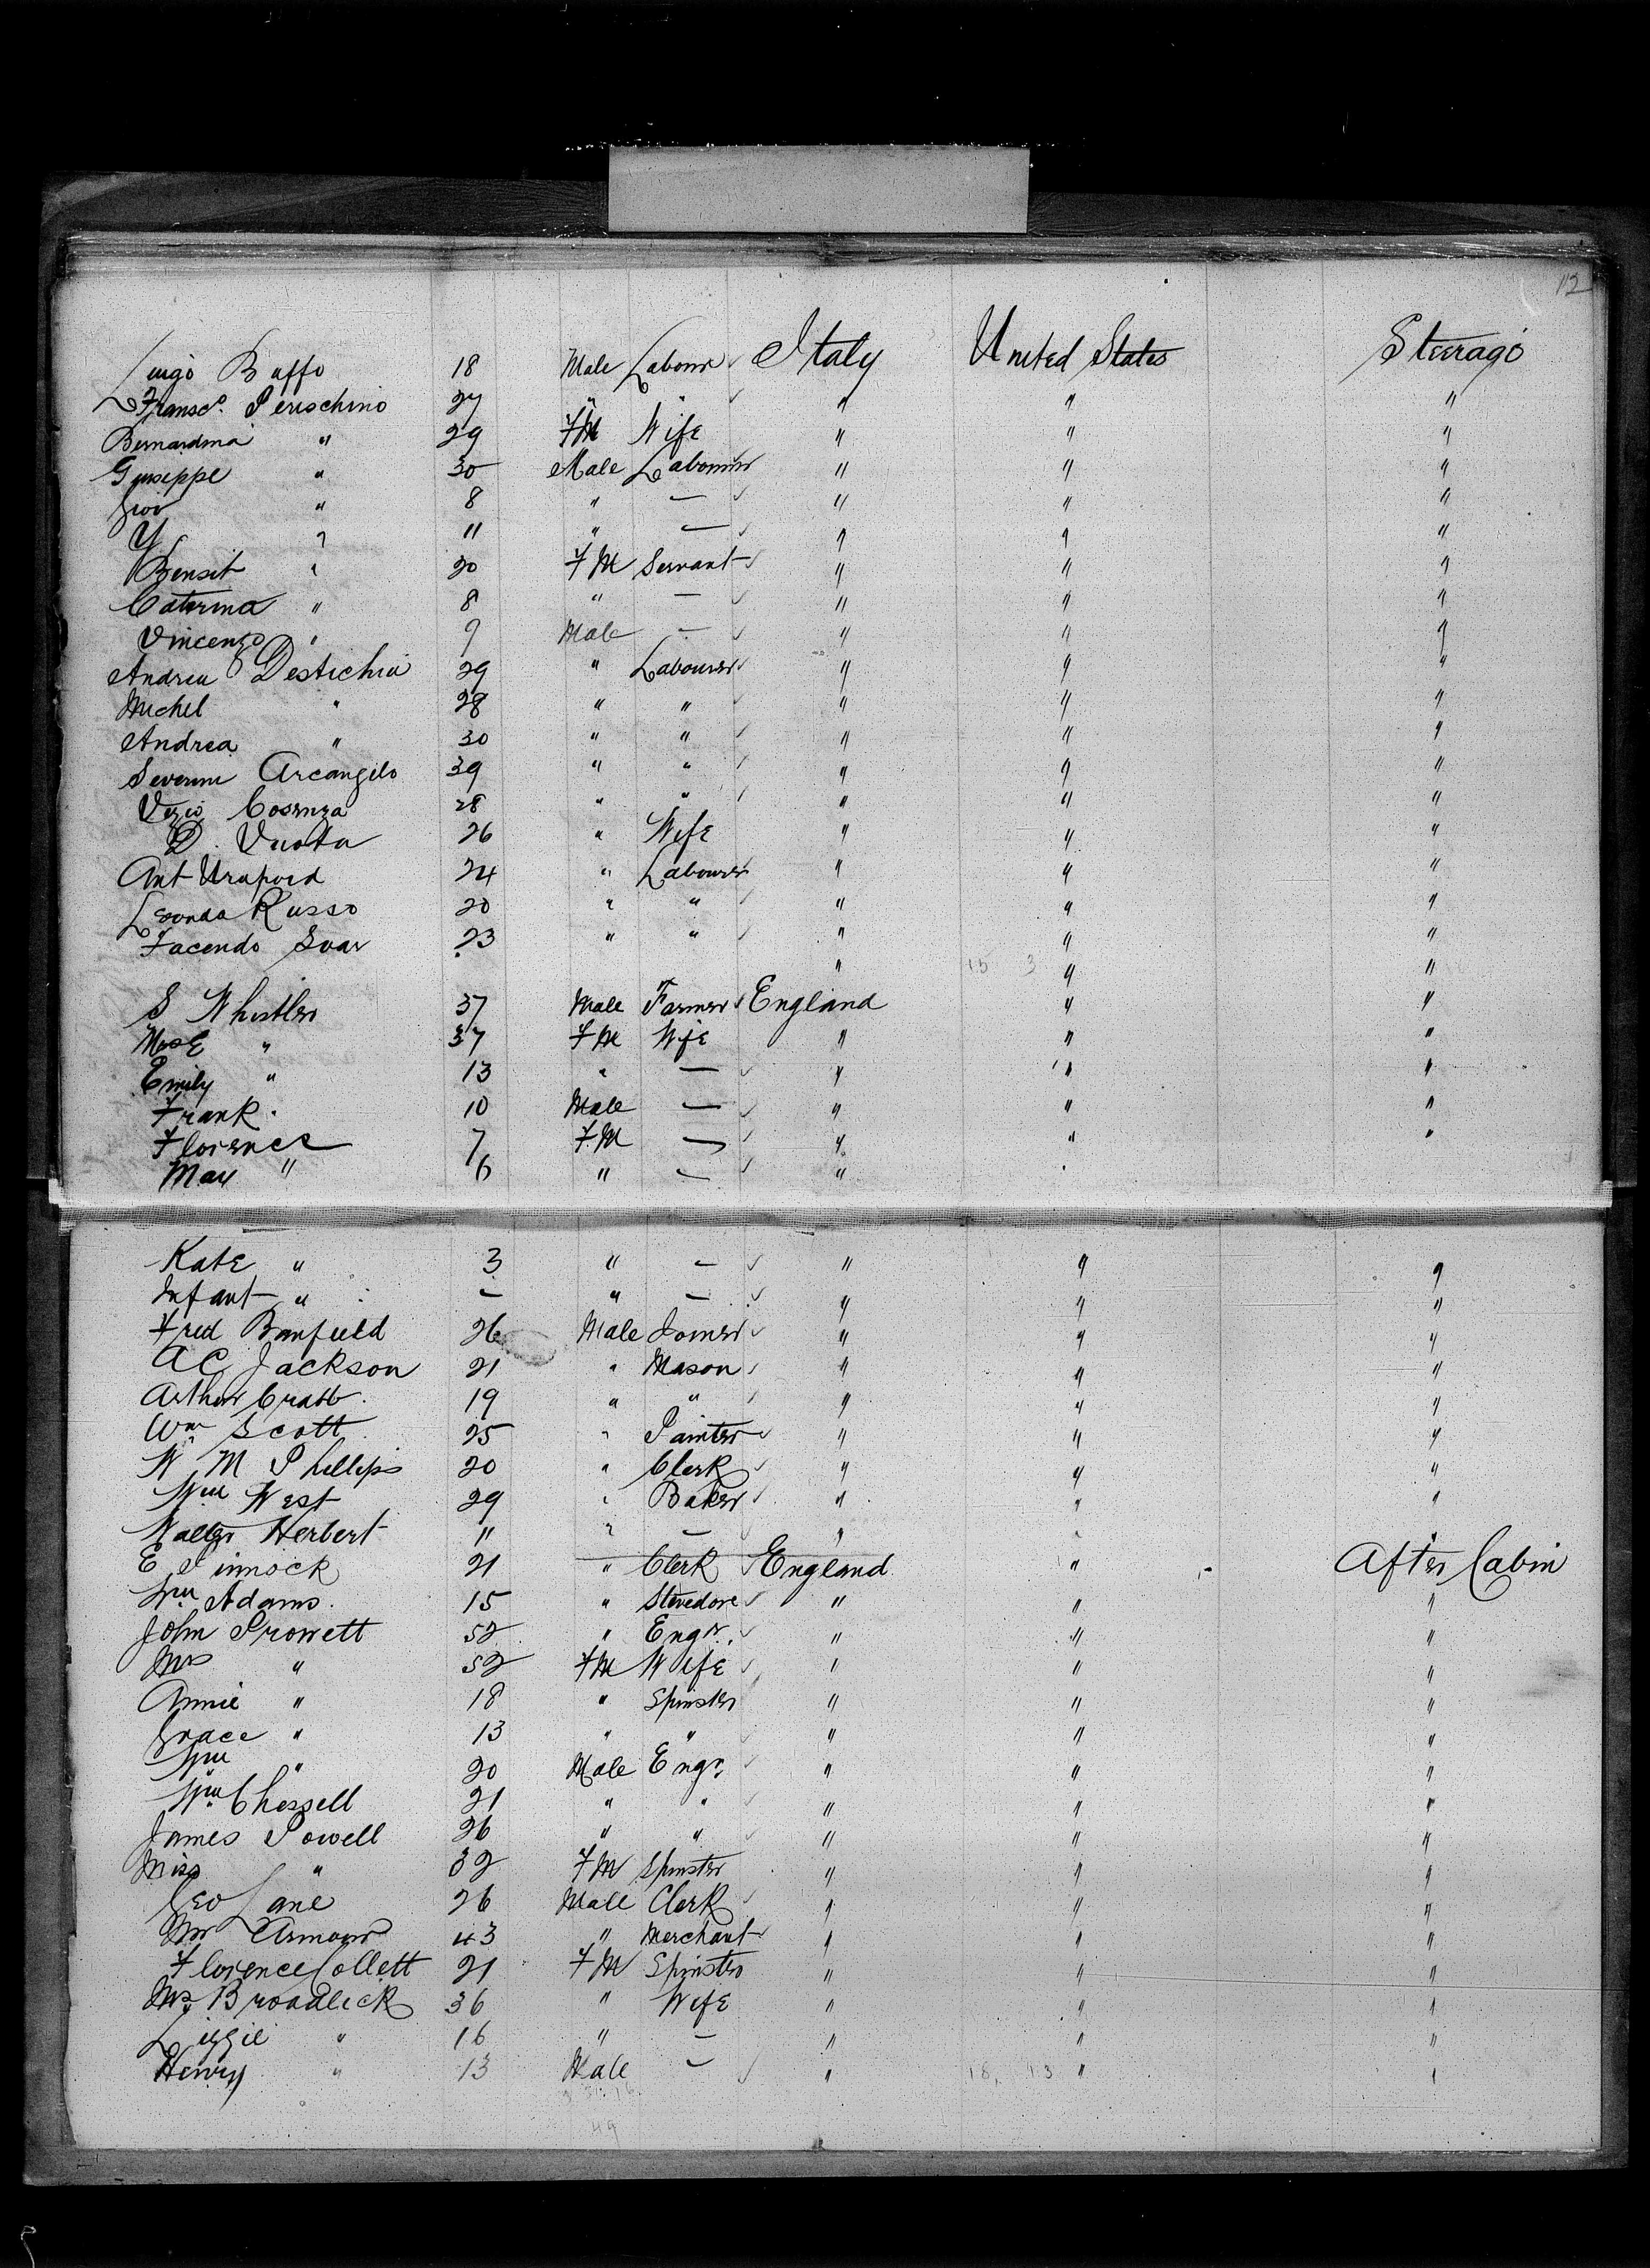 112
Luigo Buffo 18 Male Labour Italy United States Steerage
Fransco. Perischino 27 " " " " "
Bernardina " 29 FM Wife " " "
Guseppe " 30 Male Labourer " " "
Giov " 8 " — " " "
Y " 11 " — " " "
Bensit " 20 FM Servant " " "
Caterina " 8 " — " " "
Vincenzo " 9 Male — " " "
Andrea Destichia 29 " Labourer " " "
Michel " 28 " " " " "
Andrea " 30 " " " " "
Severini Arcangelo 39 " " " " "
Cosenza 28 " " " " "
D. Vuota 26 " Wife " " "
Ant 24 " Labourer " " "
Leonda Russo 20 " " " " "
Facendo Svar 23 " " " " "
" 15 3 " "
S Whistler 37 Male Farmer England " "
Mrs E " 37 FM Wife " " "
Emily " 13 " — " " "
Frank " 10 Male — " " "
Florence 7 FM — " " "
May " 6 " — "
Kate " 3 " — " " "
Infant " — " — " " "
Fred Banfield 26 Male Joiner " " "
A C Jackson 21 " Mason " " "
Arthur Crabb 19 " " " " "
Wm Scott 25 " Painter " " "
W M Phillips 20 " Clerk " " "
Wm West 29 " Baker " " "
Walter Herbert 11 " — " " "
E Pinnock 21 " Clerk England " After Cabin
Wm Adams 15 " Stevedore " " "
John Prowett 52 " Engr. " " "
Mrs " 52 FM Wife " " "
Annie " 18 " Spinster " " "
Grace " 13 " " " " "
Wm " 20 Male Engr. " " "
Wm Chessell 21 " " " " "
James Powell 26 " " " " "
Miss " 32 FM Spinster " " "
Geo Lane 26 Male Clerk " " "
Mr Armour 43 " Merchant " " "
Florence Collett 21 FM Spinster " " "
Mrs Broadlick 36 " Wife " " "
Lizzie " 16 " — " " "
Henry " 13 Male — " 18, 13 " "
49